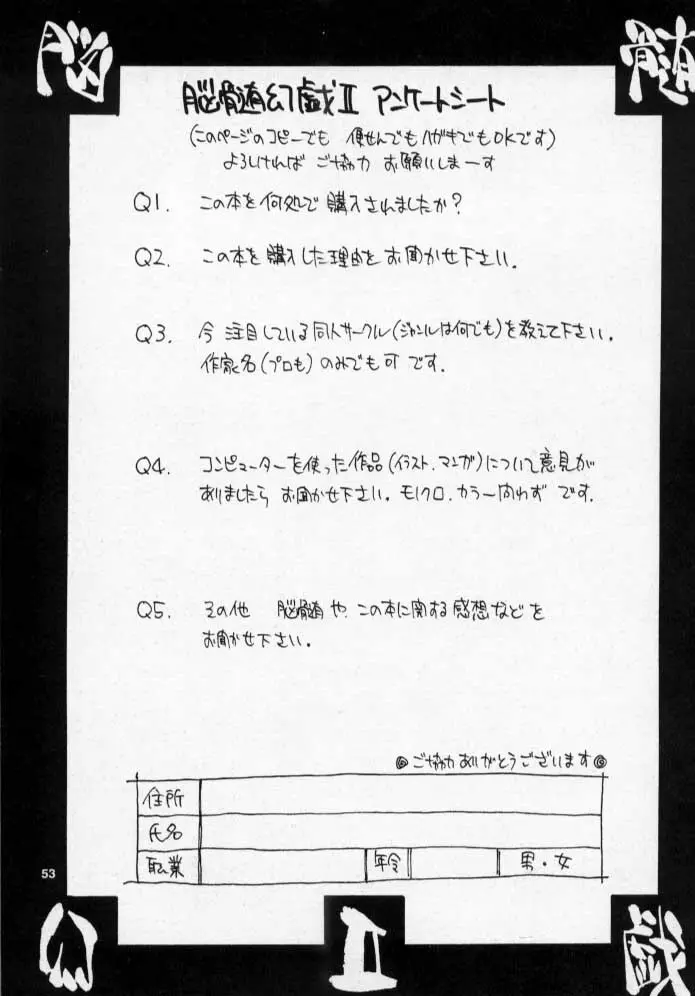 脳 髄
脳髄幻戯Ⅱ アンケートシート
(このページのコピーでも 便せんでもハガキでもOKです)
よろしければ ご協力 お願いしまーす
Q1. この本を何処で購入されましたか?
Q2. この本を購入した理由をお聞かせ下さい.
Q3. 今 注目している同人サークル(ジャンルは何でも)を教えて下さい.
作家名(プロも)のみでも可 です.
Q4. コンピューターを使った作品(イラスト.マンガ)について意見が
ありましたら お聞かせ下さい. モノクロ.カラー問わず です.
Q5. その他 脳髄や、この本に関する感想などを
お聞かせ下さい.
◎ご協力ありがとうございます◎
住所
氏名
職業 年令 男・女
53
幻 Ⅱ 戯